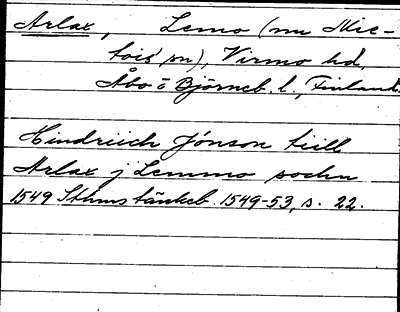 Arlax, Lemo (nu Mie-
tois sn), Virmo hd,
Åbo o Björneb. l., Finland.
Hindriich Jönson till
Arlax j Lemmo sochn
1549 Sthms tänkeb. 1549-53, s. 22.